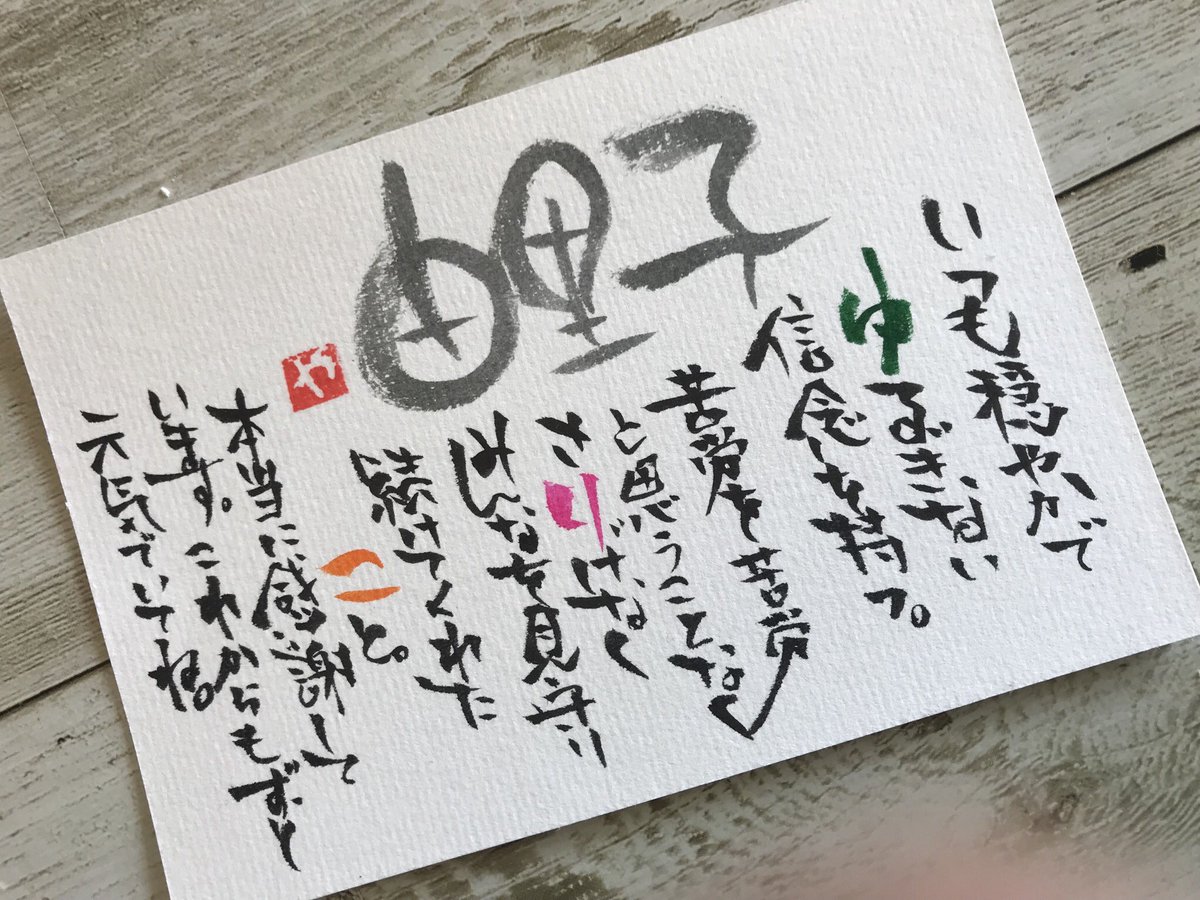 由里子
いつも穏やかで
ゆるぎない
信念を持つ。
苦労を苦労
と思うことなく
さりげなく
みんなを見守り
続けてくれた
こと。
本当に感謝して
います。これからもずっと
元気でいてね。
や